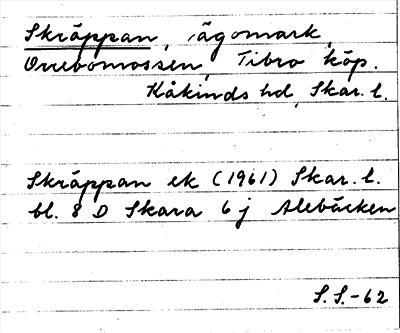 Skräppan, ägomark,
Orrebomossen, Tibro köp.
Kåkinds hd, Skar. l.
Skräppan ek (1961) Skar. l.
bl. 8 D Skara 6 j Alebäcken
S.S.-62